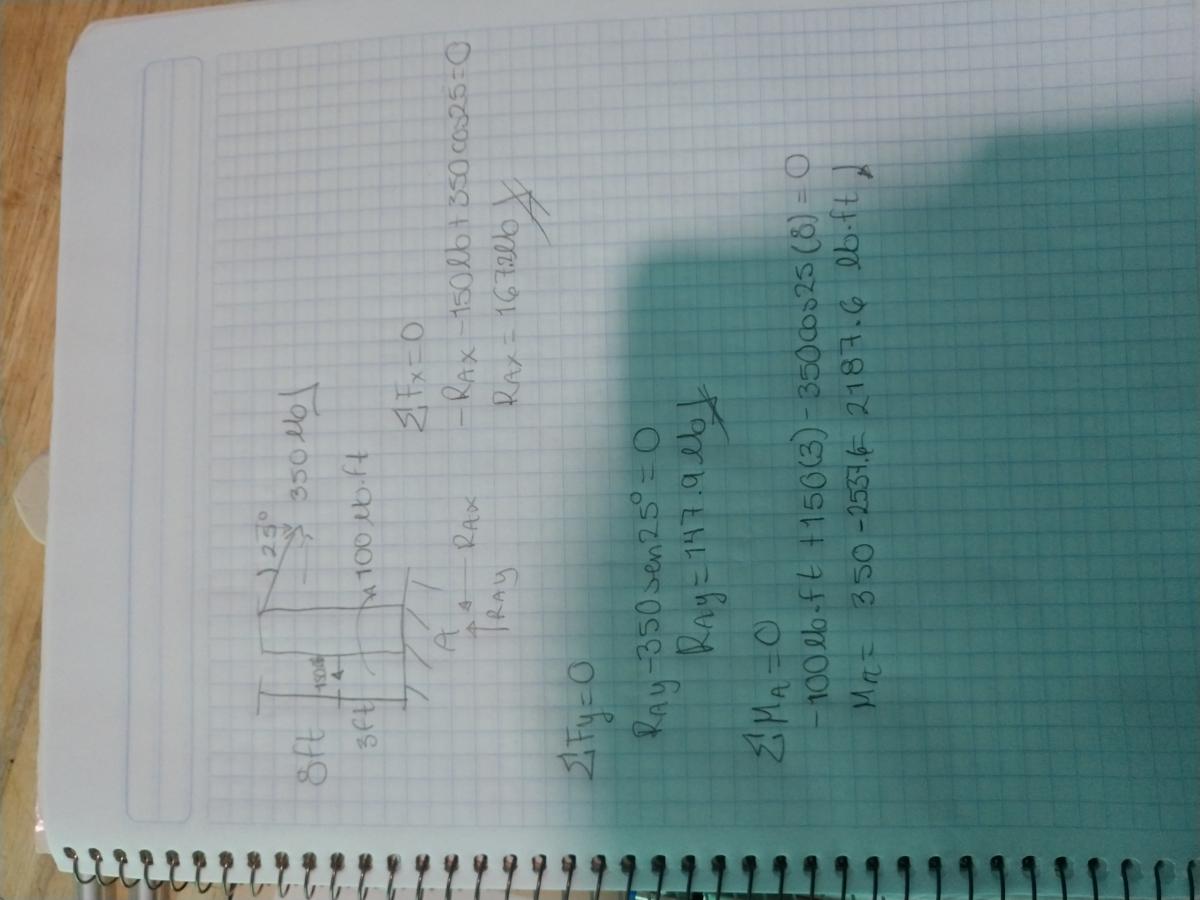 25°
350 lb
8ft
3ft
100 lb.ft
A
RAX
RAY
ΣFx=0
-RAX-150lb+350cos25=0
RAX=167.2lb
ΣFy=0
RAY-350sen25°=0
RAY=147.9lb
ΣMA=0
-100lb.ft+150(3)-350cos25(8)=0
= 350-2537.6= 2187.6 lb.ft